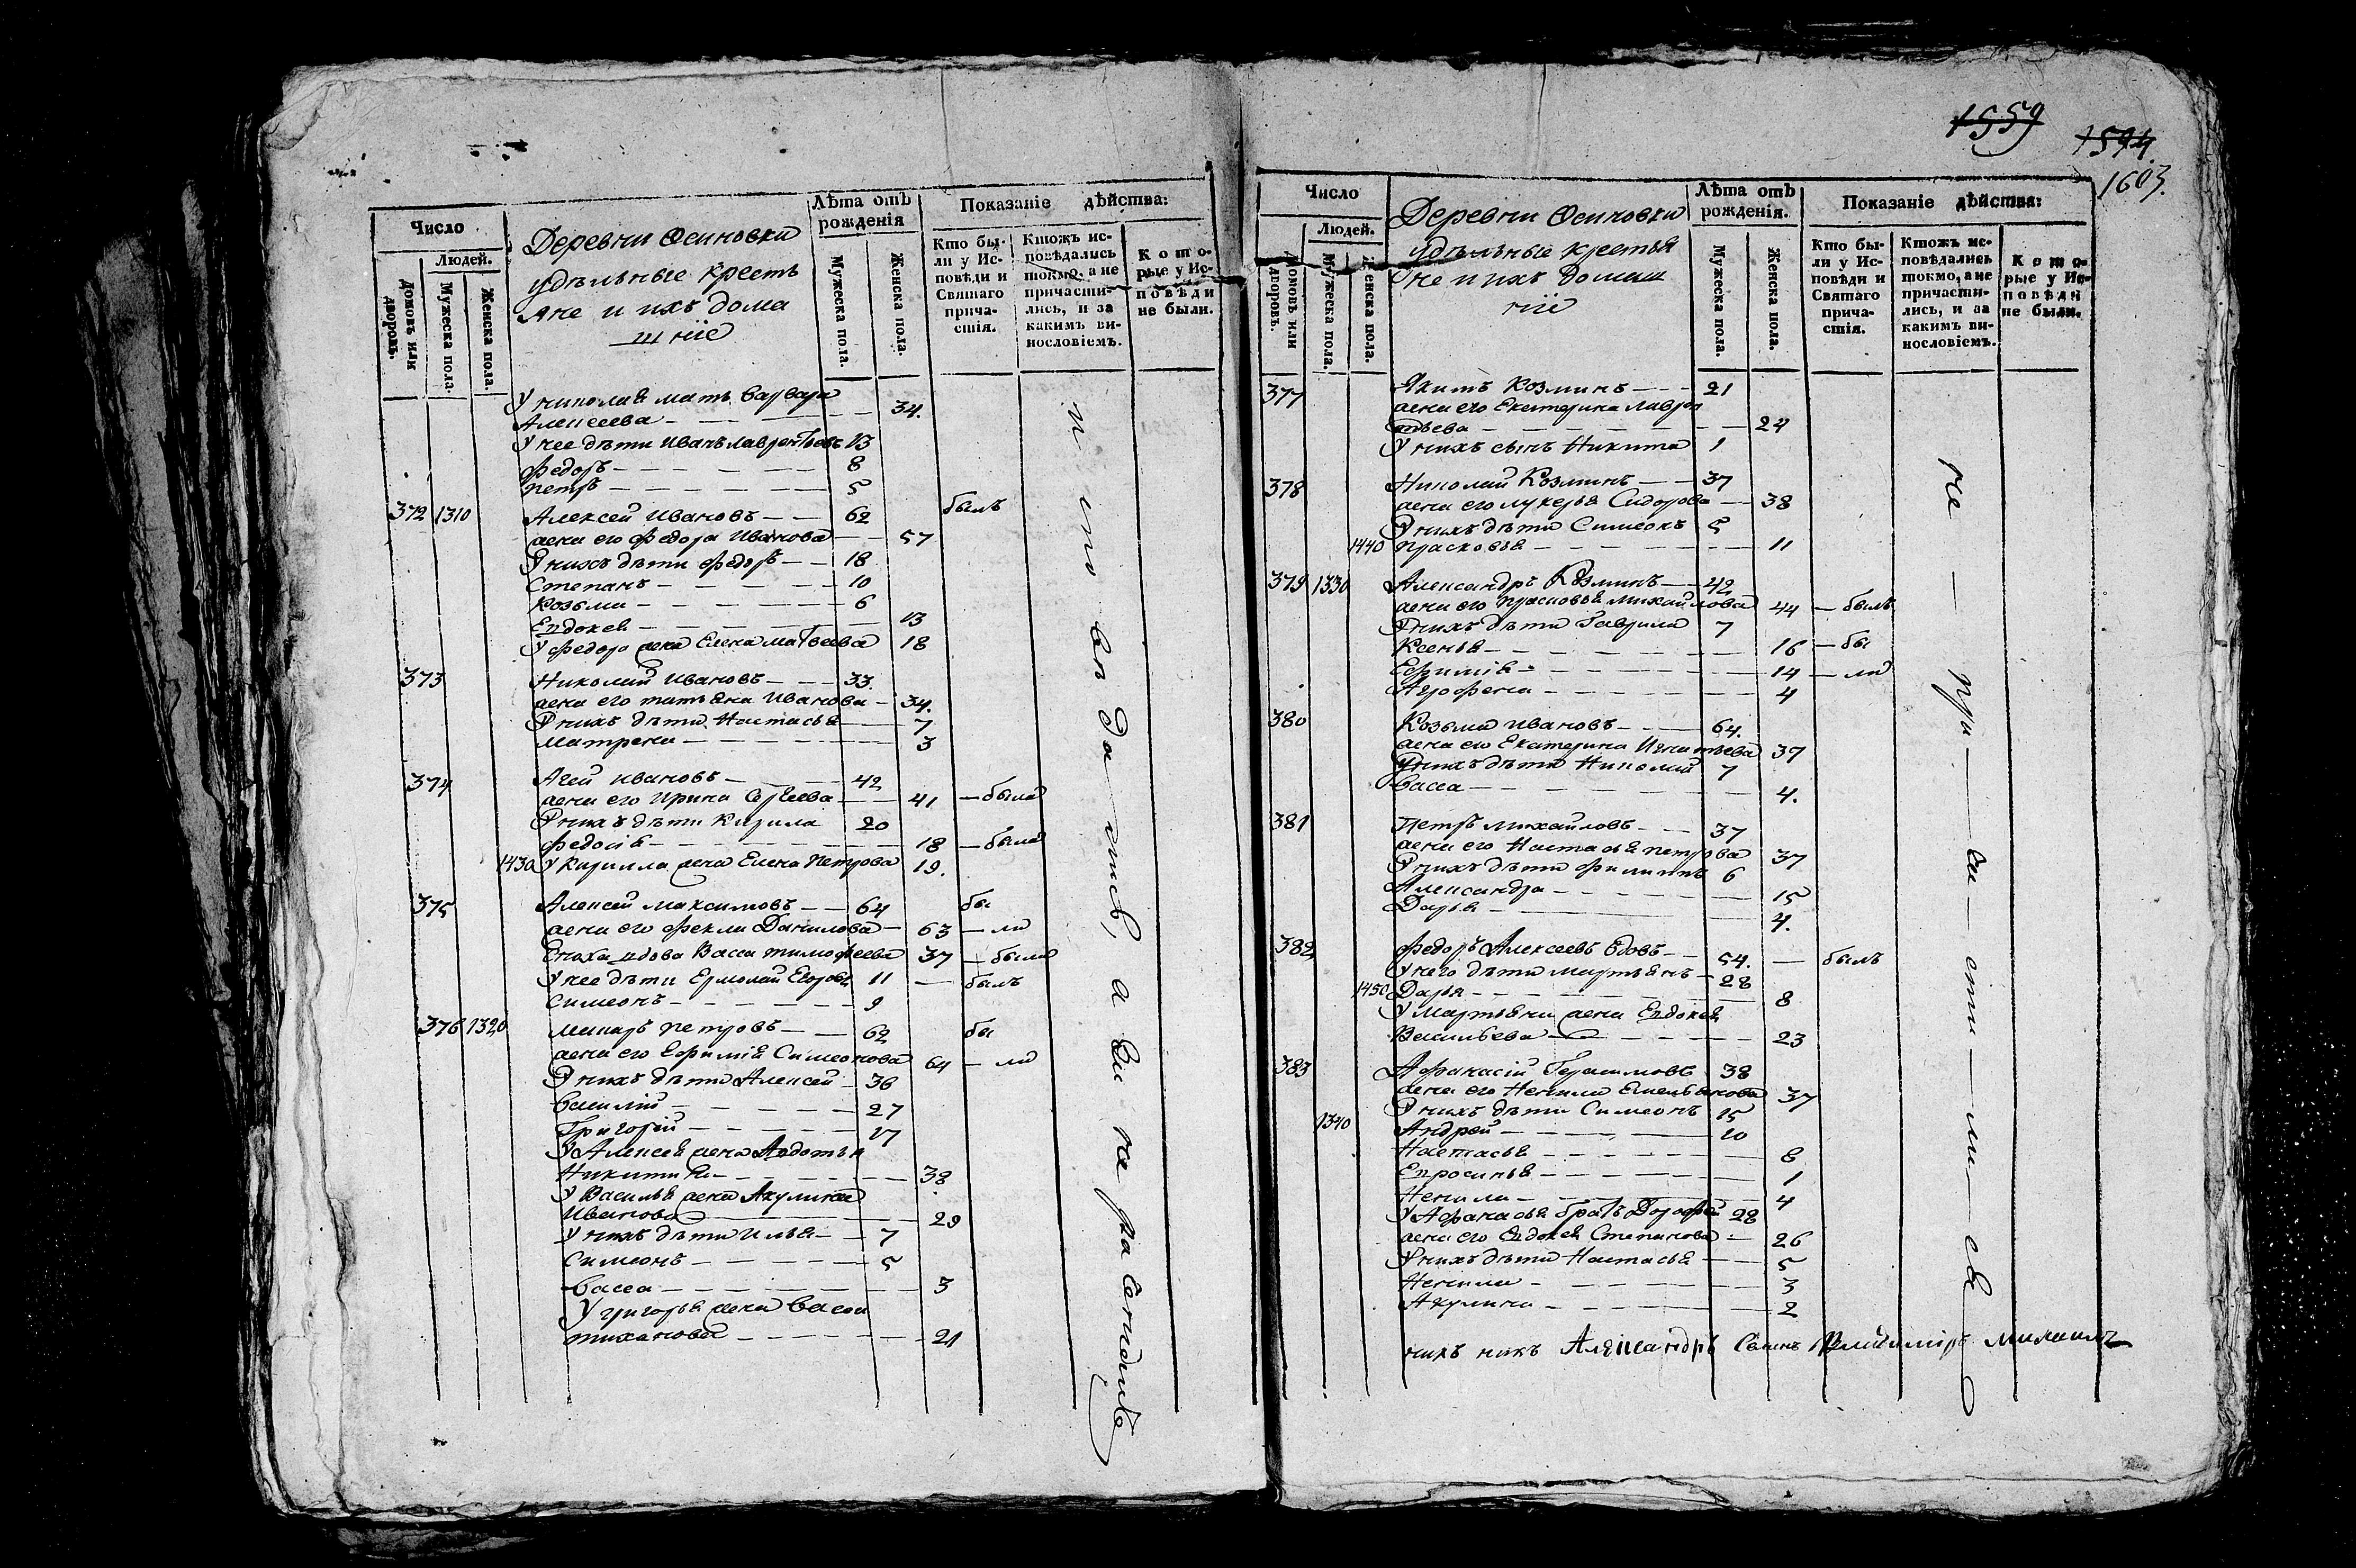 1559
1594
1603
Число
Людей.
Домовъ или дворовъ.
Мужеска пола.
Женска пола.
Деревни Осиновки
удѣльные кресть
яне и ихъ дома
шніе
Лѣта отъ рожденія
Мужеска пола.
Женска пола.
Показаніе дѣйства:
Кто бы-
ли у Ис-
повѣди и
Святаго
прича-
стія.
Ктожъ ис-
повѣдались
токмо, а не
причасти-
лись, и за
какимъ ви-
нословіемъ.
К о т о-
рые у Ис-
п о в ѣ д и
не были.
У николая мать варвара
Алексеева 34.
У нее дѣти иванъ лаврентьевъ 13
федоръ 8
петръ 5
372 1310 Алексей ивановъ 62 былъ
жена его федора Иванова 57
У нихъ дѣти федоръ 18
Степанъ 10
Козьма 6
Евдокея 13
У федора жена Елена матвеева 18
373 Николай Ивановъ 33.
жена его татьяна Иванова 34.
У нихъ дѣти Настасья 7
матрена 3
374 Агей ивановъ 42
жена его ирина Сергеева 41 была
У нихъ дѣти Кирила 20
федосія 18 была
1430 У Кирилла жена Елена петрова 19.
375 Алексей максимовъ 64 бы
жена его фекла Данилова 63 ли
Сноха вдова Васса тимофеева 37 была
У нее дѣти Ермолай Егоровъ 11 былъ
симеонъ 9
376 1320 макаръ петровъ 62 бы
жена его Ефимія Симеонова 64 ли
У нихъ дѣти Алексей 36
василій 27
Григорій 17
У Алексея жена Авдотья
Никитина 38
У Василья жена Акулина
Иванова 29
У нихъ дѣти илья 7
Симеонъ 5
васса 3
У григорья жена васса
тиханова 21
Число
Людей.
Домовъ или дворовъ.
Мужеска пола.
Женска пола.
Деревни Осиновки
удѣльные крестья
не и ихъ домаш
ніе
Лѣта отъ рожденія.
Мужеска пола.
Женска пола.
Показаніе дѣйства:
Кто бы-
ли у Ис-
повѣди и
Святаго
прича-
стія.
Ктожъ ис-
повѣдались
токмо, а не
причасти-
лись, и за
какимъ ви-
нословіемъ.
К о т о-
рые у Ис-
п о в ѣ д и
не были.
377 Якимъ Козминъ 21
жена его Екатерина лаврен
тьева 24
У нихъ сынъ Никита 1
378 Николай Козминъ 37
жена его лукерья Сидорова 38
У нихъ дѣти Симеонъ 5
1440 прасковья 11
379 1330 Александръ Козминъ 42
жена его прасковья михайлова 44 былъ
У нихъ дѣти Гаврила 7
Ксенья 16 бы
Ефимія 14 ли
Агрофена 4
380 Козьма ивановъ 64.
жена его Екатерина Игнатьева 37
У нихъ дѣти Николай 7
васса 4.
381 Петръ михайловъ 37
жена его Настасья петрова 37
У нихъ дѣти филиппъ 6
Александра 15
Дарья 4.
382 федоръ Алексеевъ вдовъ 54. былъ
У него дѣти мартьянъ 28
1450 Дарья 8
У Мартьяна жена Евдокея
Васильева 23
383 Афанасій Герасимовъ 38
жена его Ненила Емельянова 37
У нихъ дѣти Симеонъ 15
1340 Андрей 10
Настасья 8
Епросинья 1
Ненила 4
У Афанасья братъ Дорофей 28
жена его Евдокея Степанова 26
У нихъ дѣти Настасья 5
Ненила 3
Акулина 2
не при ча сти ли ся
никъ Александръ